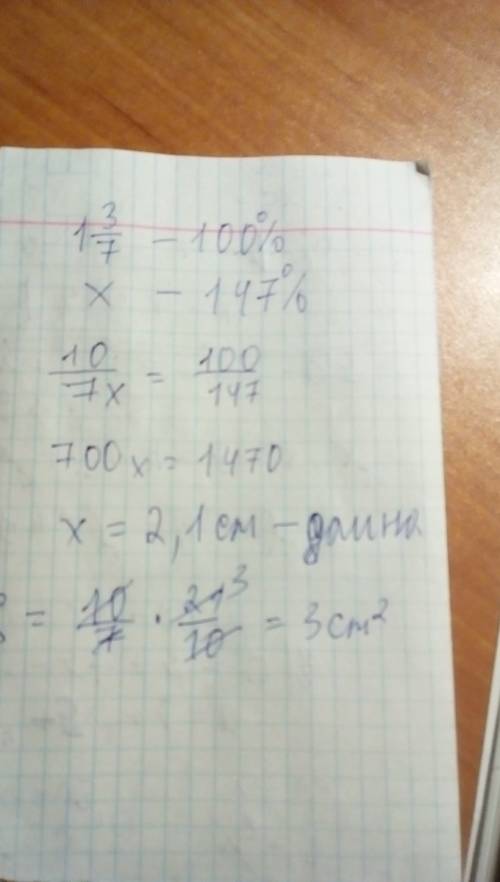 1 3/7 — 100%
x — 147%
10/7x = 100/147
700x = 1470
x = 2,1 см — длина
S = 10/7 · 21/10 3 = 3 cm²